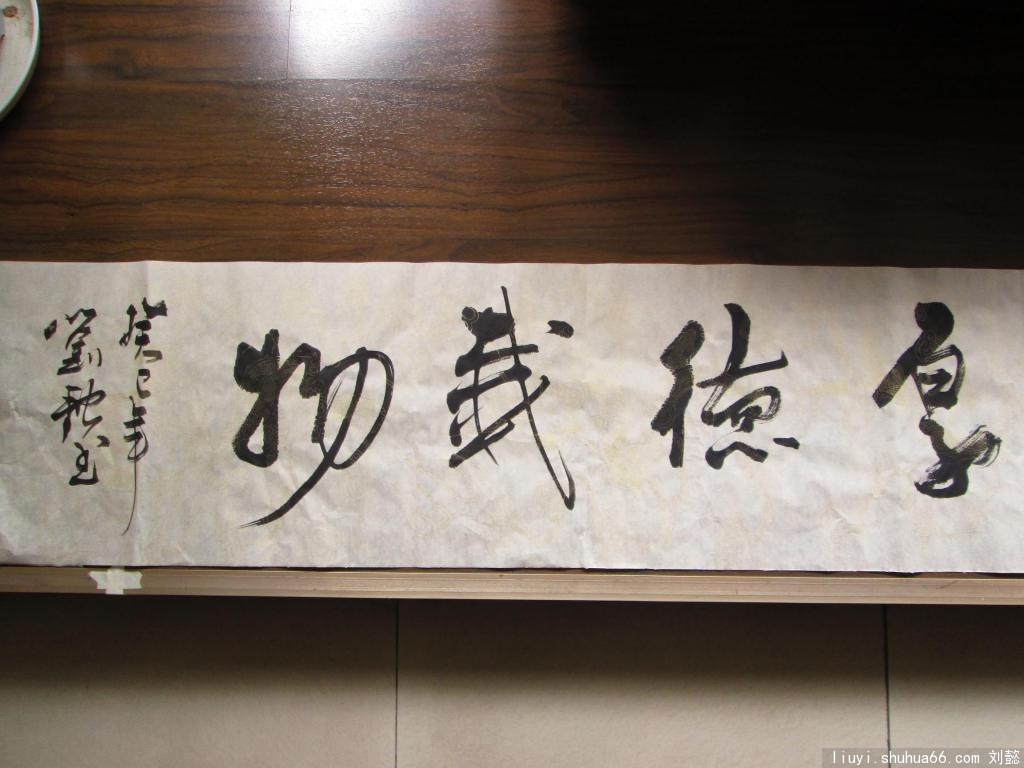 厚德載物
癸巳年
劉
liuyi.shuhua66.com 刘懿